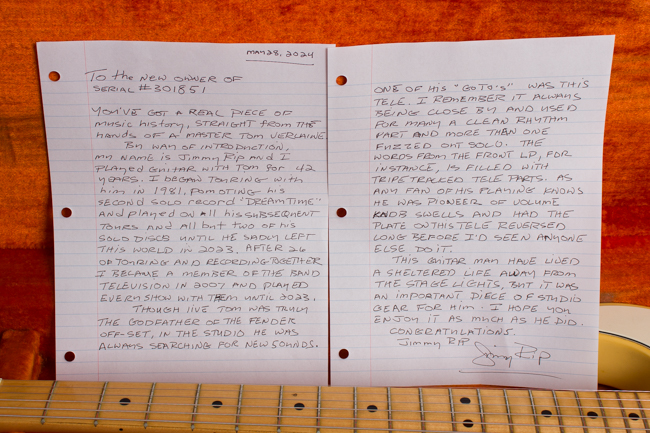 MAY 28, 2024
To the NEW OWNER OF
SERIAL #301851
YOU'VE GOT A REAL PIECE OF
MUSIC HISTORY, STRAIGHT FROM THE
HANDS OF A MASTER TOM VERLAINE
BY WAY OF INTRODUCTION,
MY NAME IS JIMMY RIP AND I
PLAYED GUITAR WITH TOM FOR 42
YEARS. I BEGAN TOURING WITH
HIM IN 1981, PROMOTING HIS
SECOND SOLO RECORD "DREAMTIME"
AND PLAYED ON ALL HIS SUBSEQENT
TOURS AND ALL BUT TWO OF HIS
SOLO DISCS UNTIL HE SADLY LEFT
THIS WORLD IN 2023. AFTER 26
OF TOURING AND RECORDING TOGETHER
I BECAME A MEMBER OF THE BAND
TELEVISION IN 2007 AND PLAYED
EVERY SHOW WITH THEM UNTIL 2023.
THOUGH LIVE TOM WAS TRULY
THE GODFATHER OF THE FENDER
OFF-SET, IN THE STUDIO HE WAS
ALWAYS SEARCHING FOR NEW SOUNDS.
ONE OF HIS "GOTO'S" WAS THIS
TELE. I REMEMBER IT ALWAYS
BEING CLOSE BY AND USED
FOR MANY A CLEAN RHYTHM
PART AND MORE THAN ONE
FUZZED OUT SOLO. THE
WORDS FROM THE FRONT LP, FOR
INSTANCE, IS FILLED WITH
TRIPE TRACKED TELE PARTS. AS
ANY FAN OF HIS PLAYING KNOWS
HE WAS PIONEER OF VOLUME
KNOB SWELLS AND HAD THE
PLATE ON THIS TELE REVERSED
LONG BEFORE I'D SEEN ANYONE
ELSE DO IT.
THIS GUITAR MAY HAVE LIVED
A SHELTERED LIFE AWAY FROM
THE STAGE LIGHTS, BUT IT WAS
AN IMPORTANT PIECE OF STUDIO
GEAR FOR HIM. I HOPE YOU
ENJOY IT AS MUCH AS HE DID.
CONGRATULATIONS.
JIMMY RIP Jimmy Rip